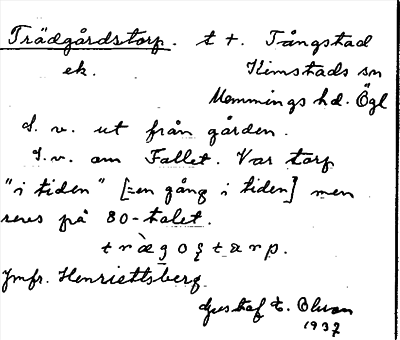 Trädgårdstorp. t +. Tångstad
ek. Kimstads sn
Memmings hd. Ögl
S. v. ut från gården.
S. v. om Fallet. Var torp
"i tiden" [=en gång i tiden] men
revs på 80-talet.
træ̀gọștarp.
Jmfr. Henriettsberg
Gustaf t. Ohson
1937